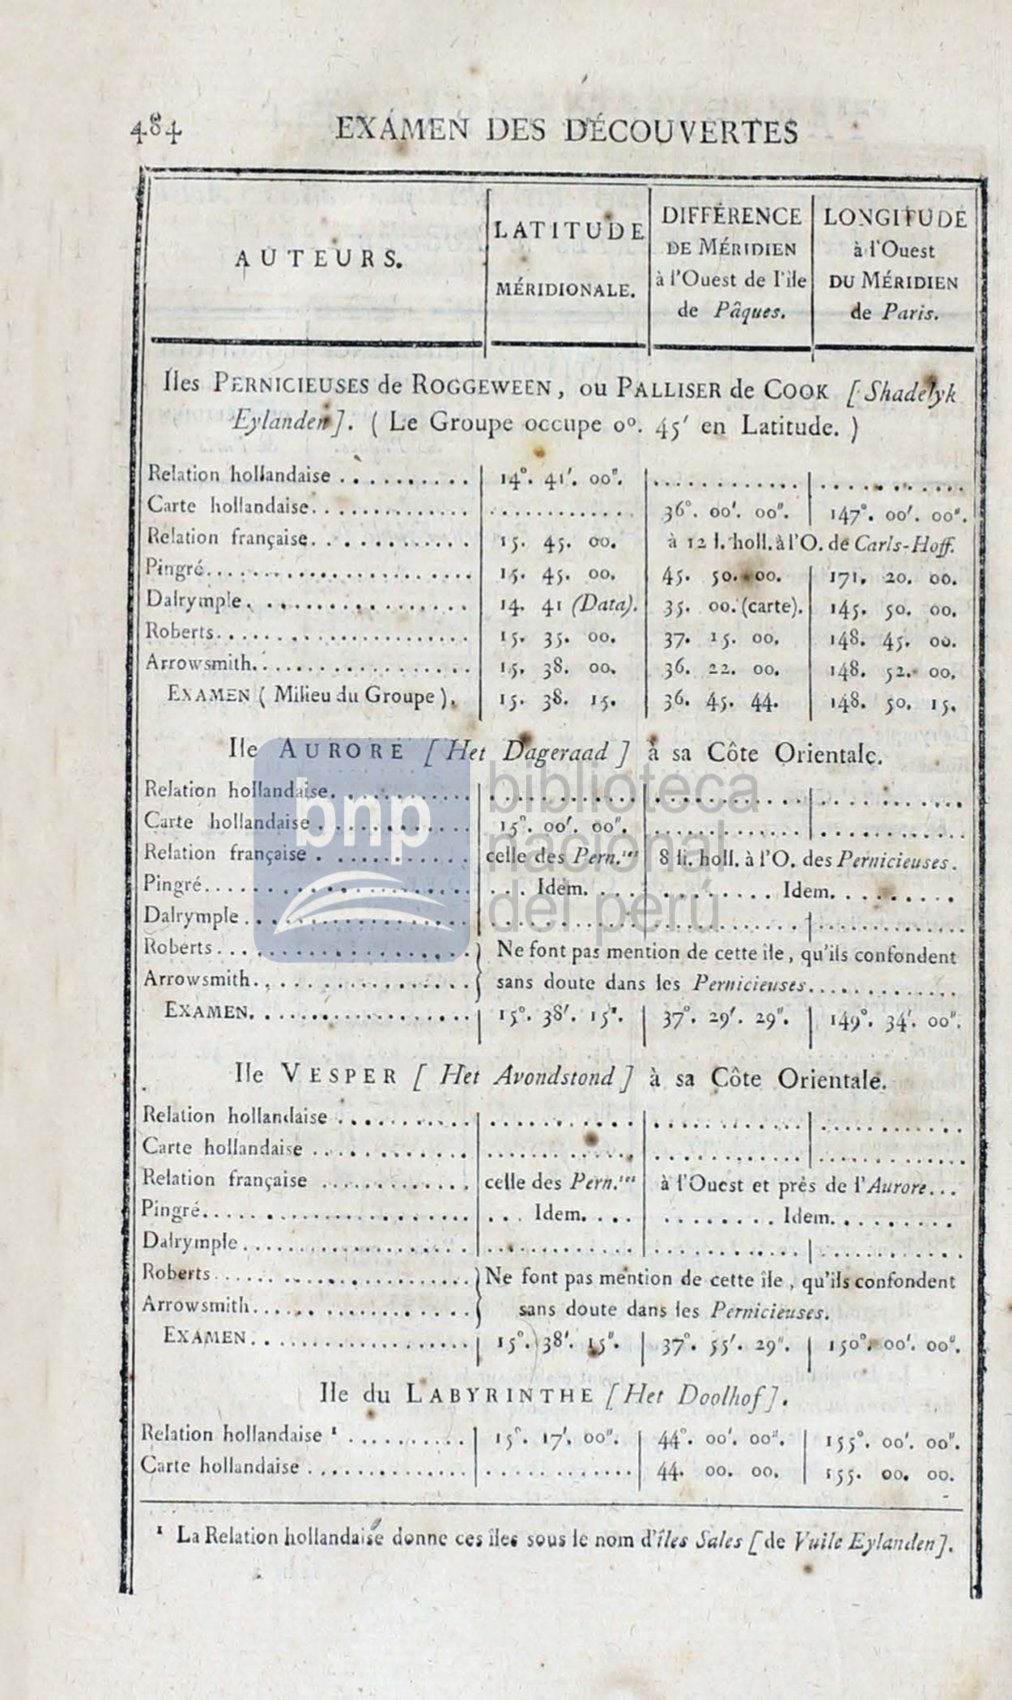 484 EXAMEN DES DÉCOUVERTES
AUTEURS.
LATITUDE
MÉRIDIONALE.
DIFFÉRENCE
DE MÉRIDIEN
à l'Ouest de l'île
de Pâques.
LONGITUDE
à l'Ouest
DU MÉRIDIEN
de Paris.
Iles PERNICIEUSES de ROGGEWEEN, ou PALLISER de COOK [Shadelyk
Eylanden]. (Le Groupe occupe 0°. 45′ en Latitude.)
Relation hollandaise .......... 14°. 41′. 00″. ............ ............
Carte hollandaise.............. ............ 36°. 00′. 00″. 147°. 00′. 00″.
Relation française............. 15. 45. 00. à 12 l. holl. à l'O. de Carls-Hoff.
Pingré....................... 15. 45. 00. 45. 50. 00. 171. 20. 00.
Dalrymple.................... 14. 41 (Data). 35. 00. (carte). 145. 50. 00.
Roberts...................... 15. 35. 00. 37. 15. 00. 148. 45. 00.
Arrowsmith................... 15. 38. 00. 36. 22. 00. 148. 52. 00.
EXAMEN (Milieu du Groupe). 15. 38. 15. 36. 45. 44. 148. 50. 15.
Ile AURORE [Het Dageraad] à sa Côte Orientale.
Relation hollandaise........... ............ ............ ............
Carte hollandaise ............ 15°. 00′. 00″. ............ ............
Relation française ............ celle des Pern.ses 8 li. holl. à l'O. des Pernicieuses.
Pingré....................... ... Idem.... ......... Idem.........
Dalrymple.................... ............ ............ ............
Roberts.................... } Ne font pas mention de cette île, qu'ils confondent
Arrowsmith................. } sans doute dans les Pernicieuses............
EXAMEN.................... 15°. 38′. 15″. 37°. 29′. 29″. 149°. 34′. 00″.
Ile VESPER [Het Avondstond] à sa Côte Orientale.
Relation hollandaise .......... ............ ............ ............
Carte hollandaise ............ ............ ............ ............
Relation française ............ celle des Pern.ses à l'Ouest et près de l'Aurore...
Pingré....................... ... Idem.... ........ Idem.........
Dalrymple.................... ............ ............ ............
Roberts.................... } Ne font pas mention de cette île, qu'ils confondent
Arrowsmith................. } sans doute dans les Pernicieuses.
EXAMEN.................... 15°. 38′. 15″. 37°. 55′. 29″. 150°. 00′. 00″.
Ile du LABYRINTHE [Het Doolhof].
Relation hollandaise ¹ .......... 15°. 17′. 00″. 44°. 00′. 00″. 155°. 00′. 00″.
Carte hollandaise ............. ............ 44. 00. 00. 155. 00. 00.
¹ La Relation hollandaise donne ces îles sous le nom d'îles Sales [de Vuile Eylanden].
bnp biblioteca
nacional
del perú